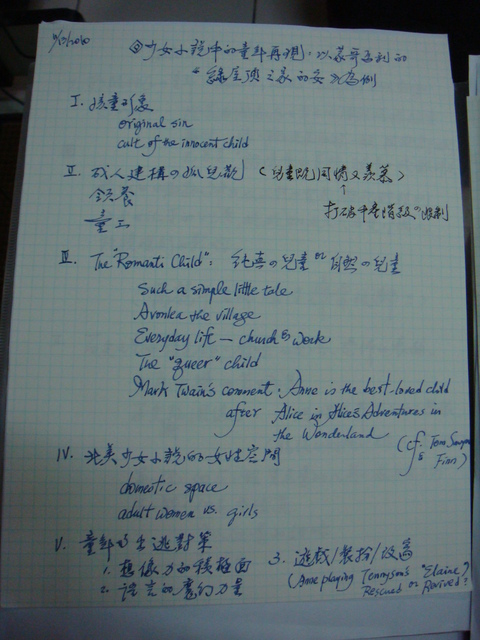 ◎少女小說中的童年再現：以蒙哥馬利的
"綠屋頂之家的安"為例
I. 孩童可愛
original sin
cult of the innocent child
II. 成人建構の孤兒觀 (兒童既同情又羨慕)
領養
打破中產階級の限制
童工
III. The "Romanti Child": 純真の兒童 or 自然の兒童
Such a simple little tale
Avonlea the village
Everyday life — church & work
The "queer" child
Mark Twain's comment: Anne is the best-loved child
after Alice in Alice's Adventures in
the Wonderland
(cf. Tom Sawyer & Finn)
IV. 北美少女小說的女性空間
domestic space
adult women vs. girls
V. 童年的出逃對策
1. 想像力的積極面
2. 語言的魔幻力量
3. 遊戲/裝扮/改寫
(Anne playing Tennyson's "Elaine"?
Rescued or Revived?